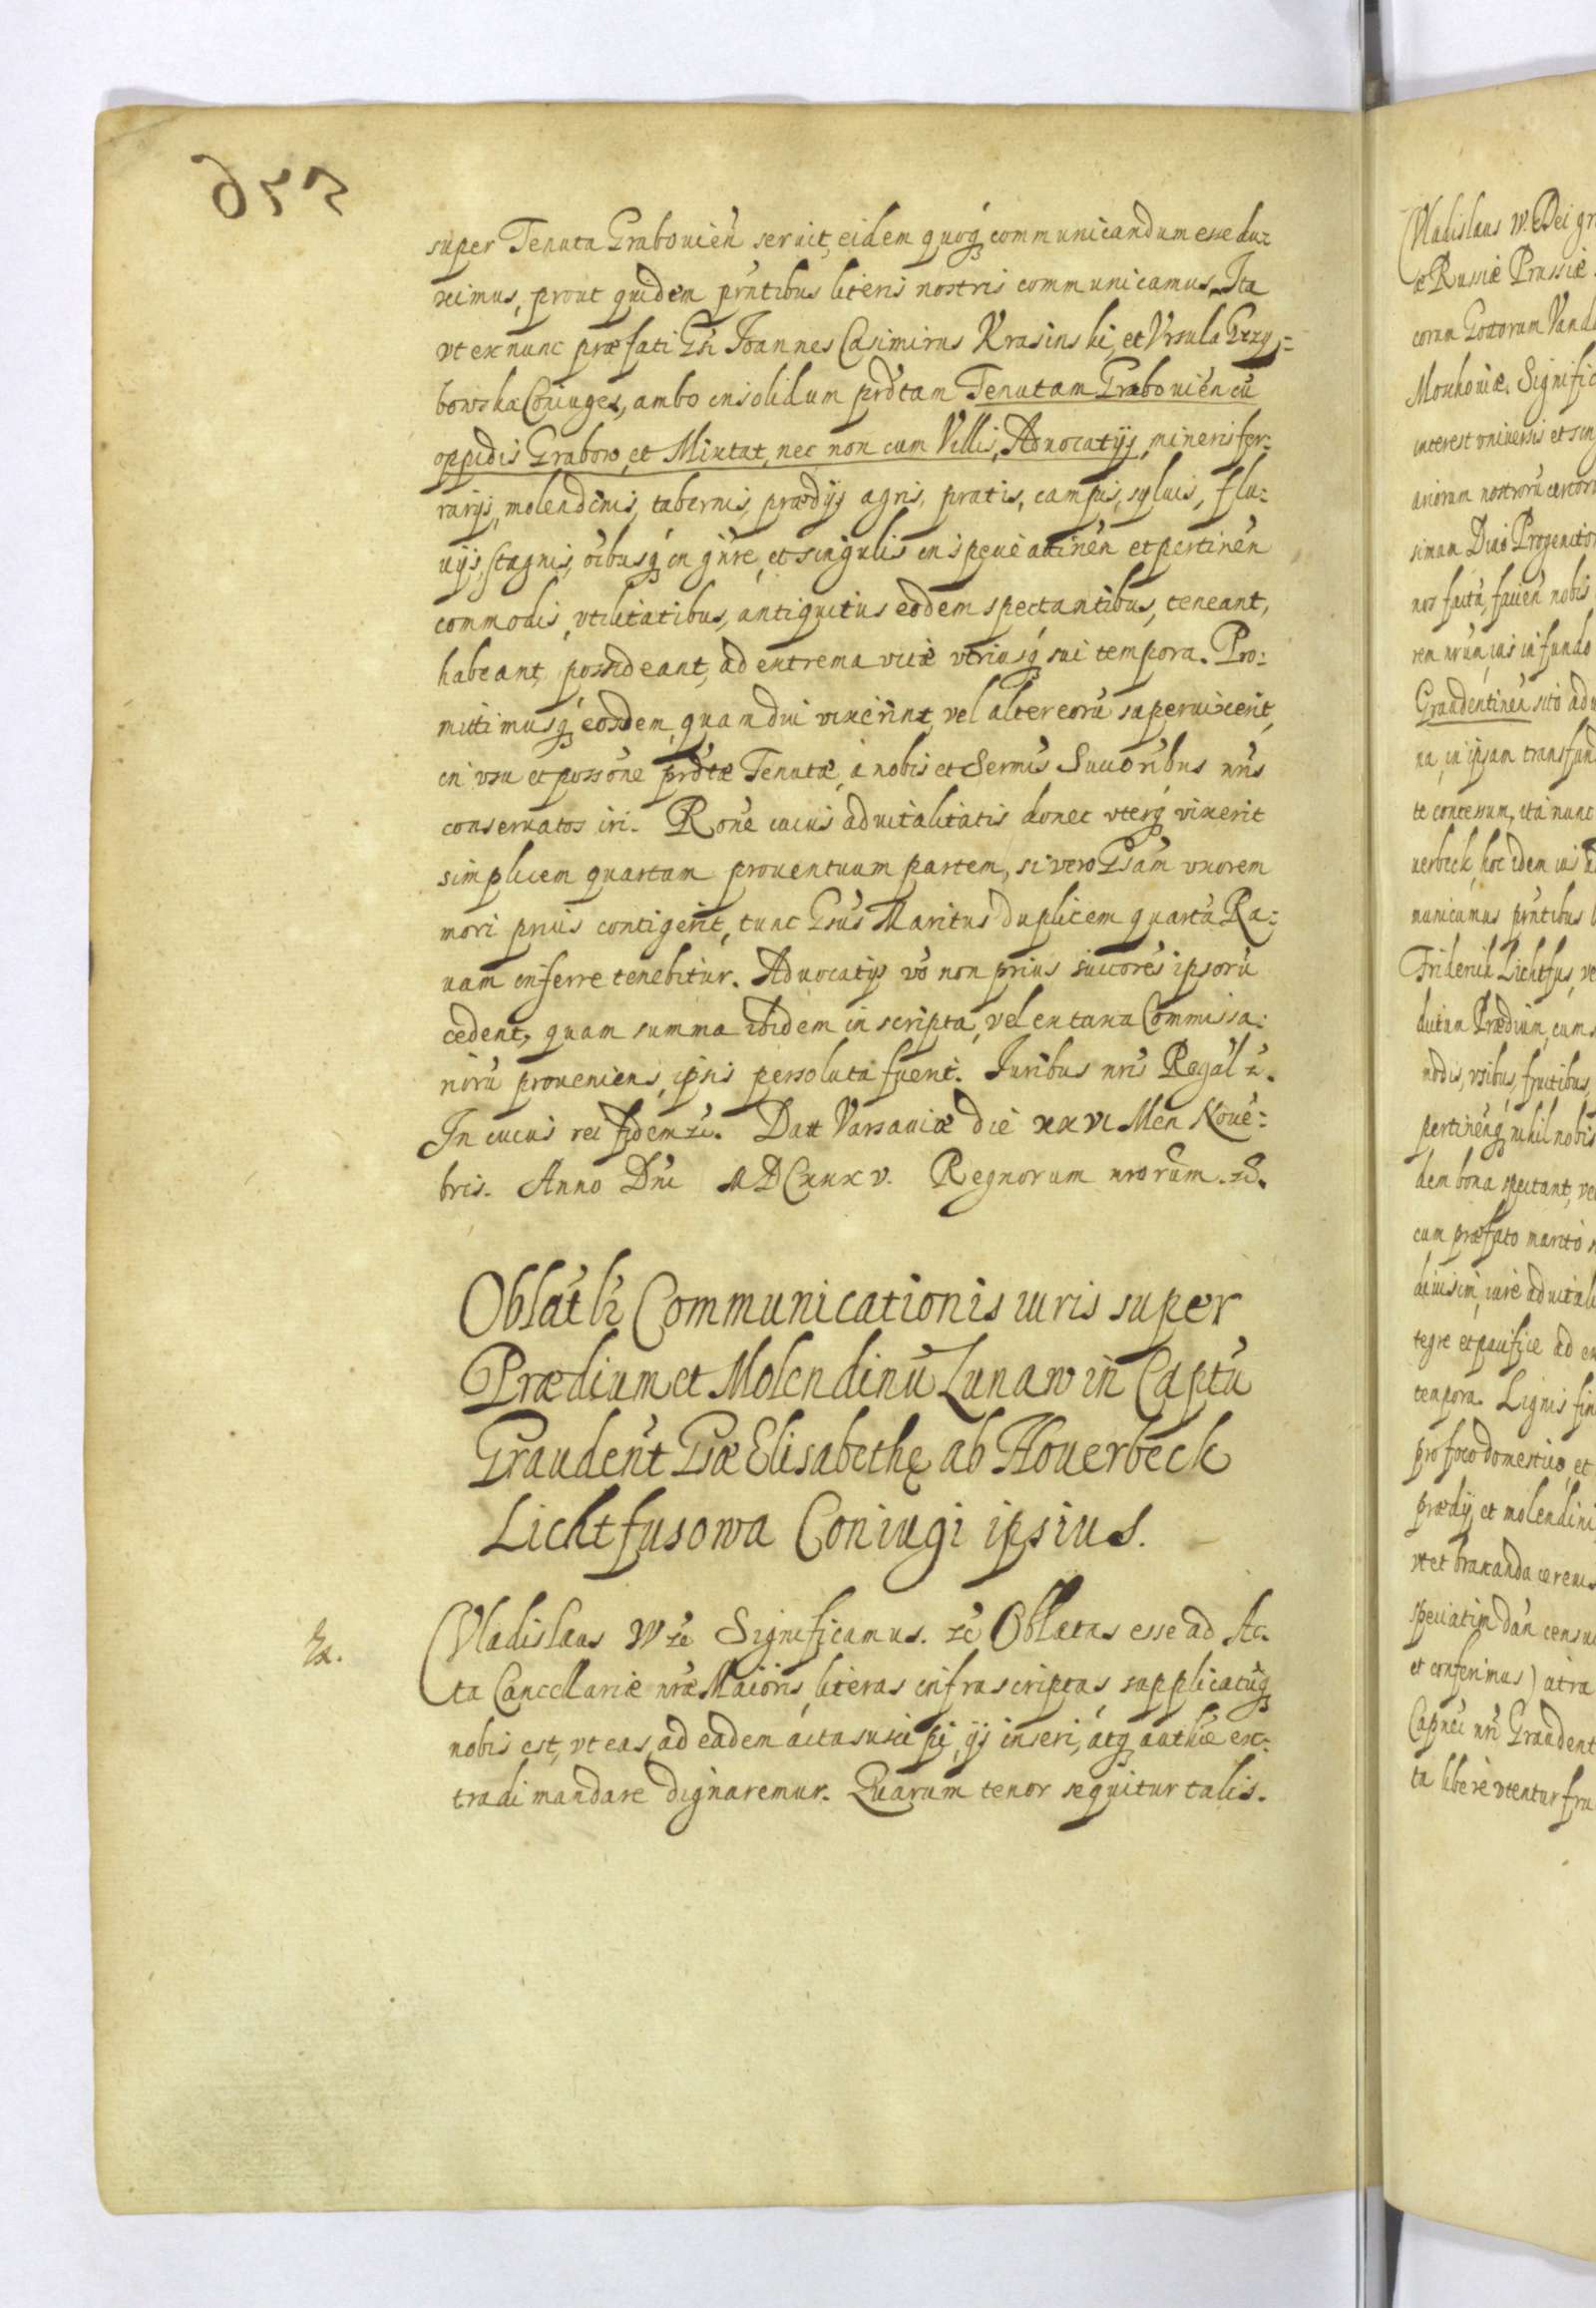 super Tenuta Grabovień servit, eidem quoq́ communicandum esse du=
ximus, prout quidem prńtibus literis nostris communicamus. Ita
vt ex nunc præfati Gsi Joannes Casimirus Krasinski, et Vrsula Grzy=
bowska Coniuges, ambo insolidum prd́tam Tenutam Grabovień cū
oppidis Grabow, et Mixtat, nec non cum Villis, Advocatijs, mineris fer=
rarijs, molendinis, tabernis, prædijs agris, pratis, campis, syluis, flu=
uijs, stagnis, oībusq́ in gńre, et singulis in specie attinēn et pertinēn
commodis, vtilitatibus, antiquitus eodem spectantibus, teneant,
habeant, possideant, ad extrema vitæ vtriusq́ sui tempora. Pro=
mittimusq́ eosdem, quamdiu vixerint, vel alter eorū supervixerit,
in vsu et possōne prd́tæ Tenutæ, à nobis et Sermīs Succoribus nrīs
conservatos iri. Rōne cuius advitalitatis donec vterq́ vixerit
simplicem quartam proventuum partem, si vero Gsām vxorem
mori prius contigerit, tunc Gsūs Maritus duplicem quartā Ra=
uam inferre tenebitur. Advocatijs vō non prius succorēs ipsorū
cedent, quam summa ibidem inscripta, vel ex taxa Commissa=
riorū proveniens, ipsis persoluta fuerit. Iuribus nrīs Regal z.
In cuius rei fidem zc. Datt Varsaviæ die xxvi Men Novē=
bris. Anno Dnī MDCxxxv. Regnorum nrorūm. zc.
Oblāt lr̄ Communicationis iuris super
Prædium et Molendinū Lunaw in Captū
Graudent́ Gsæ Elisabethę ab Hoverbeck
Lichtfusowa Coniugi ipsius.
Vladislaus IV zc Significamus. zc Oblatas esse ad Ac
ta Cancellariæ nræ Maioris, literas infrascriptas, supplicatūq́
nobis est, vt eas, ad eadem acta suscipi, ijs inseri, atq́ authē ex=
tradi mandare dignaremur. Quarum tenor sequitur talis.
Vladislaus IV. Dei gr
æ Russiæ Prussiæ
corum Gottorum Vand
Moschoviæ. Signific
interest vniversis et sin
nos factā, faven nobis
ren nrūn, ius in fundo
na, in ipsam transfund
te concessum, ita nunc
uerbeck, hoc idem ius
municamus prńtibus
Friderich Lichtfus, ve
dictum Prædium, cum
modis, vsibus, fructibus,
pertinēnq́ nihil nobis
dem bona spectant, ve
cum præfato marito
diuisim, iure advitali
tegre et pacifice ad ex
tempora. Lignis
pro foco domestico, et
prædij et molendini
et conferimus) utra
Graudent
ta libere vtentur fru